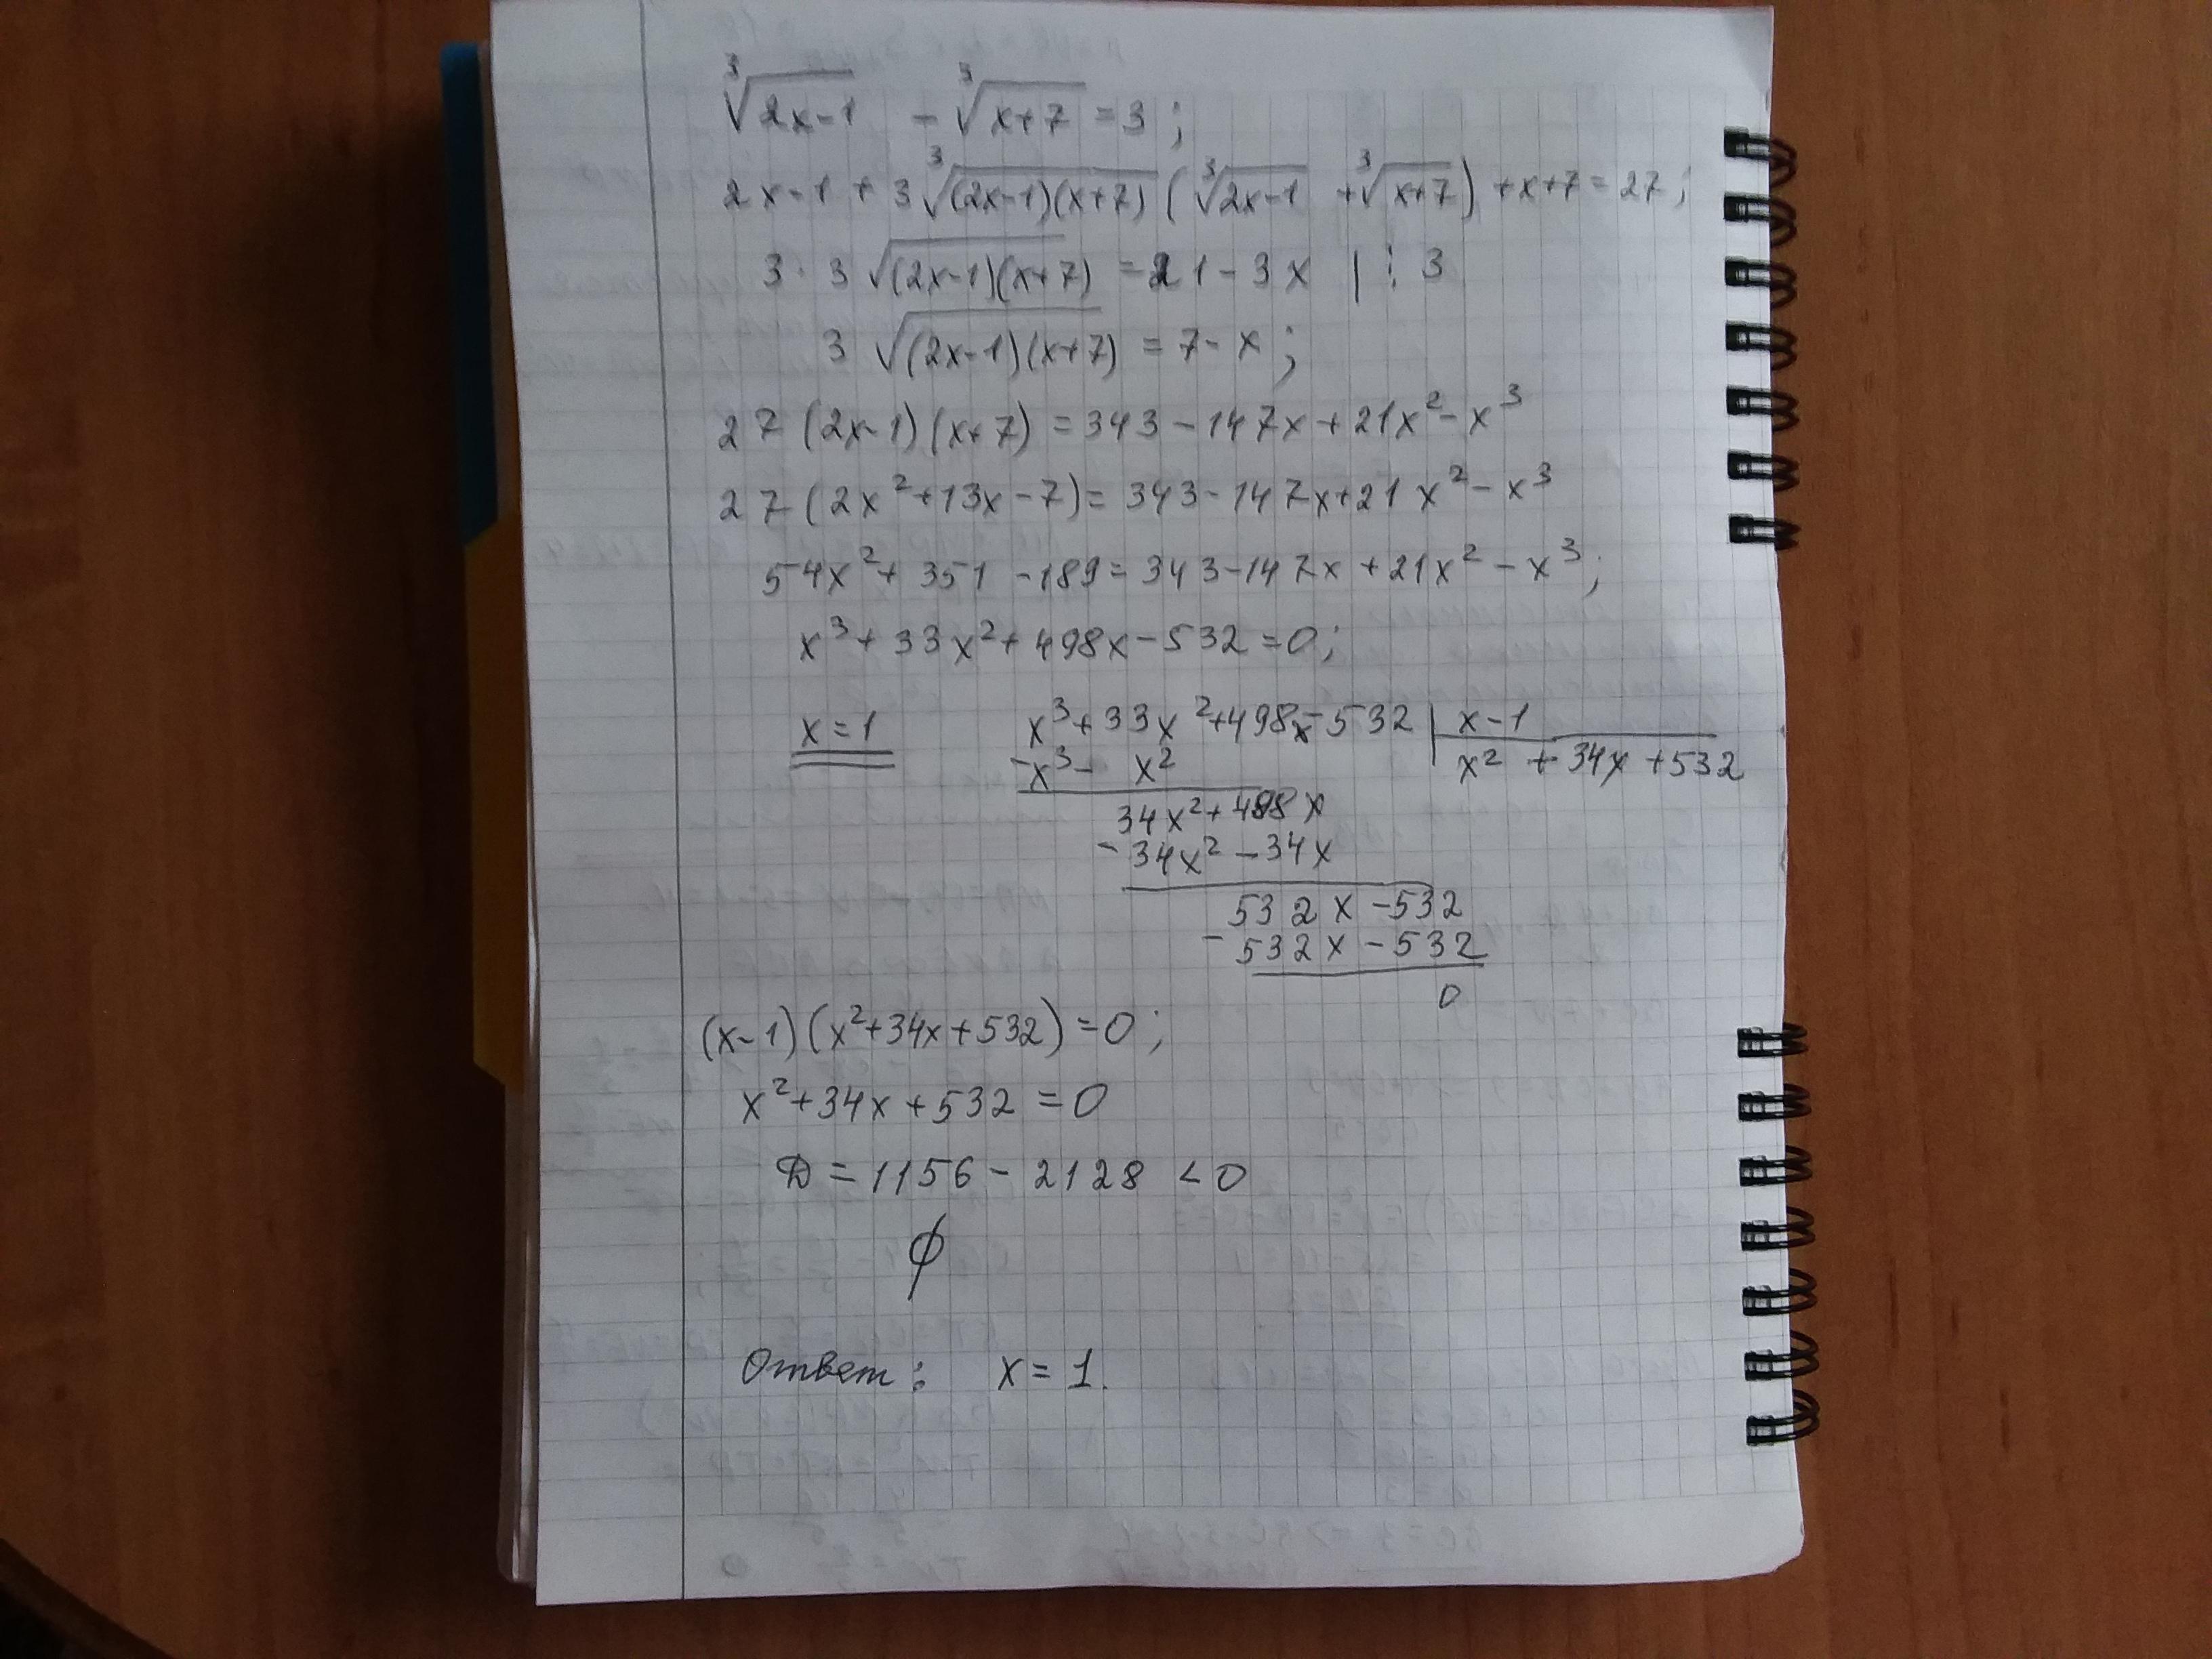 ∛(2x-1) - ∛(x+7) = 3;
2x-1 + 3∛((2x-1)(x+7)) (∛(2x-1) + ∛(x+7)) + x+7 = 27;
3 · 3 √((2x-1)(x+7)) = 21 - 3x | : 3
3 √((2x-1)(x+7)) = 7 - x;
27 (2x-1)(x+7) = 343 - 147x + 21x² - x³
27 (2x² + 13x - 7) = 343 - 147x + 21x² - x³
54x² + 351 - 189 = 343 - 147x + 21x² - x³;
x³ + 33x² + 498x - 532 = 0;
x = 1
x³ + 33x² + 498x - 532 | x - 1
- x³ - x² | x² + 34x + 532
34x² + 498x
- 34x² - 34x
532x - 532
- 532x - 532
0
(x-1)(x² + 34x + 532) = 0;
x² + 34x + 532 = 0
D = 1156 - 2128 < 0
∅
Ответ: x = 1.